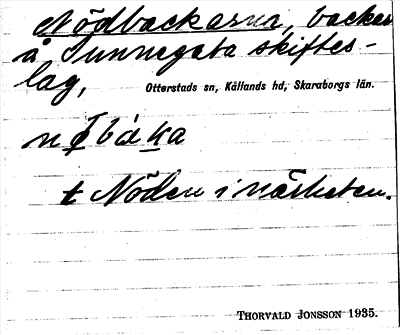 Nödbackarna, backar
å Sunnegata skiftes-
lag,
Otterstads sn, Kållands hd, Skaraborgs län.
t Nöden i närheten.
THORVALD JONSSON 1935.